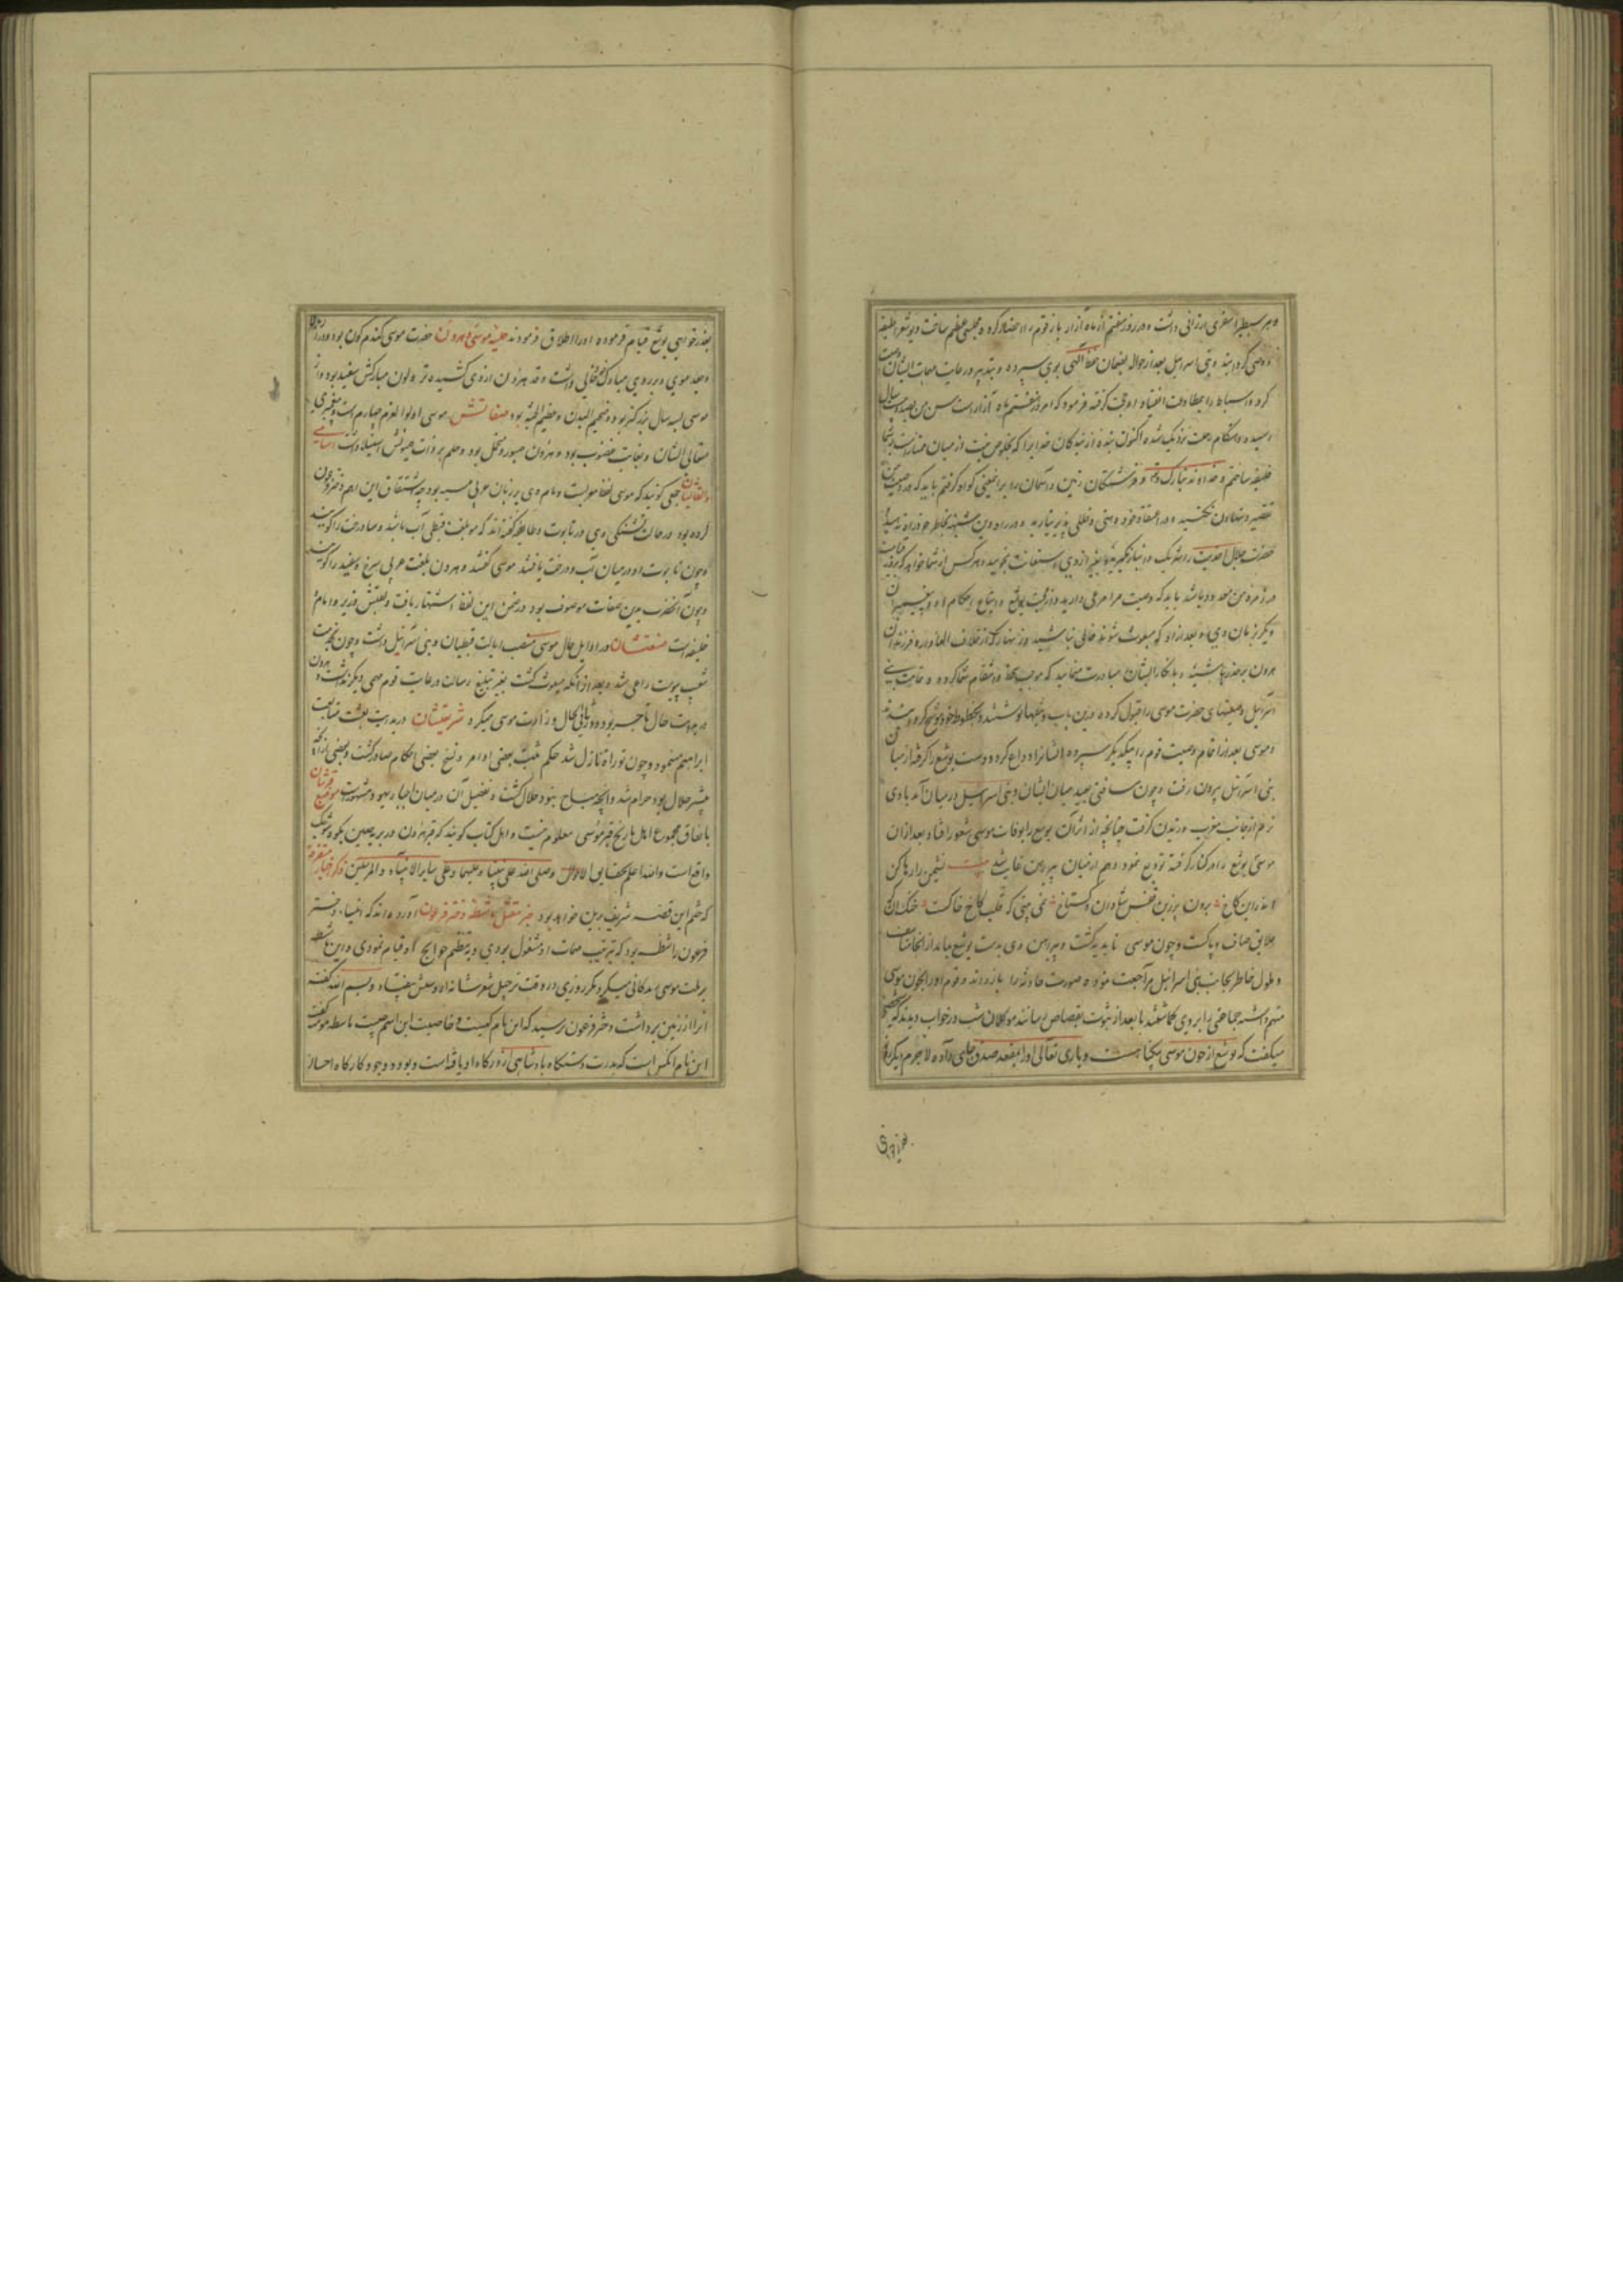 و هر سبطی را سفری ارزانی داشت و در روز هفتم از ماه آزار باز قوم را احضار کرده مجلسی عظیم ساخت و یوشع را خلیفه
و وصی گردانید و بنی اسرائیل بعد از حواله بضمان حفظ الهی بوی سپرده و بتدبیر و رعایت مهمات ایشان
کرد و اسباط را بمطاوعت و انقیاد او گرفته فرمود که امروز هفتم ماه آزار است سن من بصد و بیست سال
رسیده و هنگام رحلت نزدیک شده اکنون بنده از بندگان خدا را که بخلوص نیت از میان شما
خلیفه ساختم و خداوند تبارک و تعالی و فرشتگان زمین و آسمان را برین معنی گواه گرفتم باید که در وصیت من
تقصیر و تهاون نکنید و در اعتقاد خود وهنی و خللی پذیر نیارید و در راه دین شبهه بخاطر خود راه ندهید
حضرت جلال احدیت را شریک و انباز مگیرید و بغیر از وی استعانت مجویید و هر کس از شما خواهد که بروز قیامت
در زمره من معدود باشد باید که وصیت مرا مرعی دارید و از رغبت یوشع و اتباع احکام او و پیغمبران
دیگر بزمان وی و بعد از او که مبعوث شوند خالی نباشید و زنهار که از خلاف العازر و فرزندان
هرون برحذر باشید و بانکار ایشان مبادرت منمایید که موجب سخط و انتقام شما گردد و جماعت بنی
اسرائیل وصیتهای حضرت موسی را قبول کرده درین باب وثیقها نوشتند و بخطوط خود موشح کردند
و موسی بعد از اتمام وصیت قوم را بیکدیگر سپرده ایشانرا وداع کرد و دست یوشع را گرفته از میان
بنی اسرائیل بیرون رفت و چون مسافتی بعید میان ایشان و بنی اسرائیل در میان آمد بادی
نرم از جانب مغرب وزیدن گرفت چنانچه از اثر آن یوشع را بوفات موسی شعور افتاد بعد از آن
موسی یوشع را در کنار گرفته تودیع نمود و هم از میان پیراهن غایب شد بیت نشیمن را رها کن
اندرین کاخ برون پر زین قفس شو وان گستاخ نمی بینی که قلب کاخ خاکست خنک آن کز
علایق صاف و پاکست و چون موسی ناپدید گشت و پیراهن وی بدست یوشع بماند از آنجا متاسف
و ملول خاطر بجانب بنی اسرائیل مراجعت نموده صورت حادثه را باز راند و قوم او را بخون موسی
متهم داشته جماعتی را بر وی گماشتند تا بعد از ثبوت بقصاص رسانند موکلان شب در خواب دیدند که شخصی
میگفت که یوشع از خون موسی بیگناه است و باری تعالی او را بمقعد صدق جای داده لاجرم دیگر روز
بعذرخواهی یوشع قیام فرموده او را اطلاق فرمودند حلیه موسی و هرون حضرت موسی گندم گون بود و دراز
و جعد موی و بر روی مبارک خالی داشت و قد هرون از وی کشیده تر و لون مبارکش سفید بود و از
موسی بسه سال بزرگتر بود و ضخیم البدن و عظیم الجثه بود صفاتش موسی اولوا العزم چهارم است و پیغمبری
متعالی الشان و بغایت غضوب بود و هرون صبور و متحمل بود و حلم بر ذات همیونش استیلا داشت اسامی
و القابشان جمعی گویند که موسی لفظا معربست و نام وی بزبان عربی مسیه بود چه اشتقاق این اسم دختر فرعون
کرده بود در حالت وی در تابوت و طایفه گفته اند که مو بلغت قبطی آب باشد و سا درخت را گویند
و چون تابوت او در میان آب و درخت یافتند موسی گفتند و هرون بلغت عربی سرخ و سفید را گویند
و چون آنحضرت بدین صفات موصوف بود در ضمن این لفظ اشتهار یافت و لقبش وزیر و امام
خلیفه است صنعتشان در اوایل حال موسی منصب ایالت قبطیان و بنی اسرائیل داشت و چون بخدمت
شعیب پیوست راعی شد و بعد از آنکه مبعوث گشت بغیر تبلیغ رسالت و رعایت قوم مهمی دیگر نداشت و هرون
در بدایت حال تاجر بود و در ثانی الحال وزارت موسی میکرد شریعتشان در بدایت بعثت متابعت
ابراهیم مینمود و چون توراة نازل شد حکم مثبت بعضی اوامر و نسخ بعضی احکام صادر گشت و بعضی از آنکه
پیشتر حلال بود حرام شد و آنچه مباح نبود حلال گشت و تفصیل آن در میان احبار یهود مشهور است موضع قبرشان
باتفاق مجموع اهل تاریخ قبر موسی معلوم نیست و اهل کتاب گویند که قبر هرون در بریه سین بکوه
واقع است والله اعلم بحقایق الاحوال وصلی الله علی نبینا وعلیهما وعلی سایر الانبیاء والمرسلین ذکر اخبار متفرقه
که ختم این قصه شریف بدین خواهد بود خبر مقتل ماشطه دختر فرعون آورده اند که دختر
فرعون را ماشطه بود که بترتیب مهمات او مشغول بودی و بتنظیم حوایج او قیام نمودی و این ماشطه
بر ملت موسی زندگانی میکرد مگر روزی در وقت ترجیل شعر شانه از دستش بیفتاد و بسم الله گفته
آنرا از زمین برداشت دختر فرعون پرسید که این نام کیست و خاصیت این اسم چیست ماشطه مومنه گفت
این نام آنکس است که پدرت دستگاه پادشاهی از درگاه او یافته است و بوده وجود کارگاه احسان
بعذرخواهی